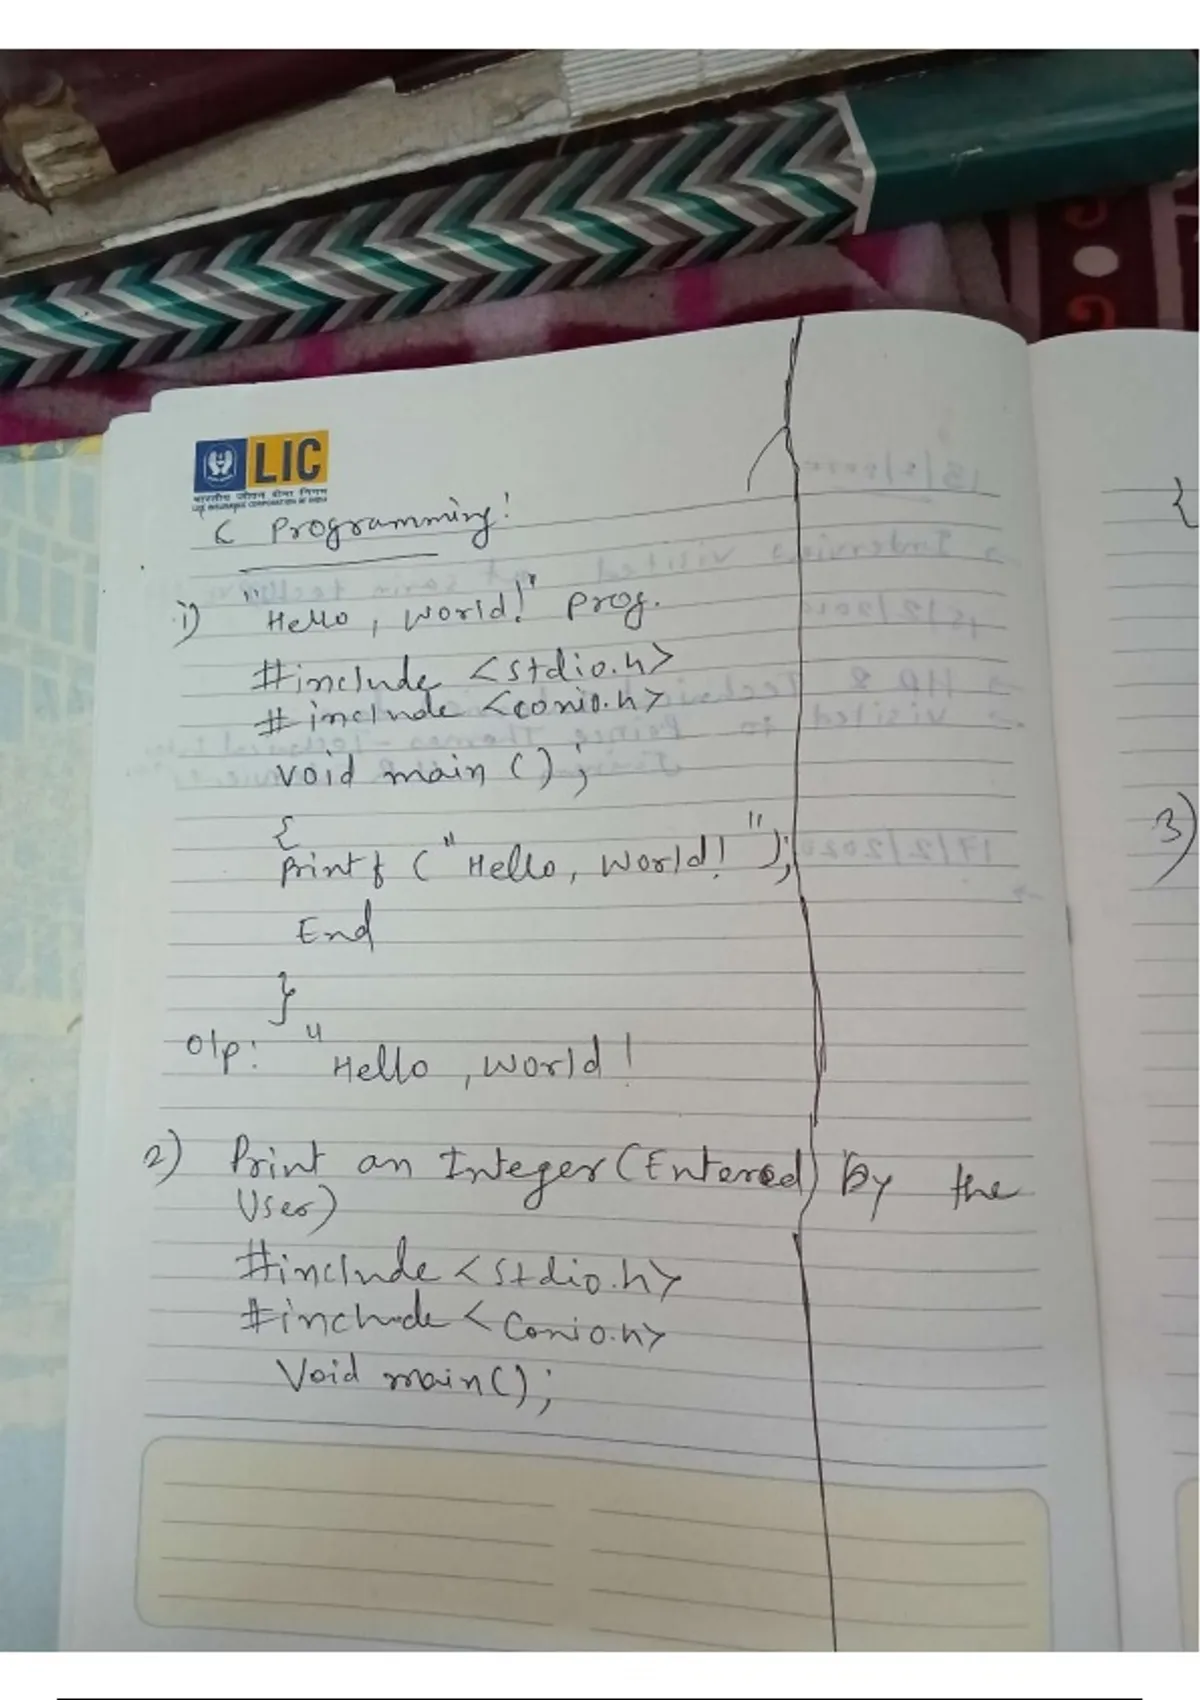 LIC
भारतीय जीवन बीमा निगम
LIFE INSURANCE CORPORATION OF INDIA
C Programming!
1) "Hello, World!" Prog.
#include <stdio.h>
#include <conio.h>
void main ( ) ;
{
printf ( "Hello, World! " );
End
}
o/p: " Hello , World !
2) Print an Integer (Entered) By the
User)
#include <stdio.h>
#include < Conio.h>
Void main( ) ;
{
3)